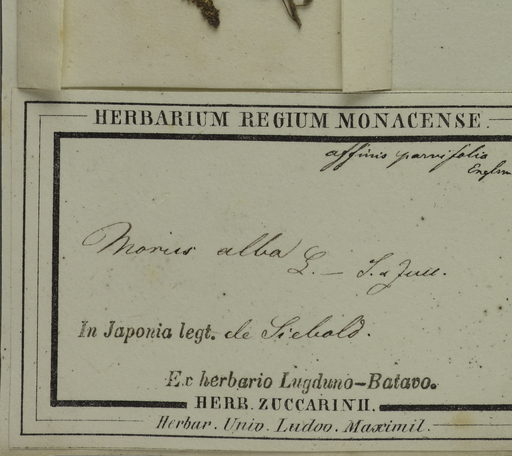 HERBARIUM REGIUM MONACENSE.
affinis parvifolia
Englm
Morus alba L. — S. & Zucc.
In Japonia legt. de Siebold.
Ex herbario Lugduno-Batavo.
HERB. ZUCCARINII.
Herbar. Univ. Ludov. Maximil.